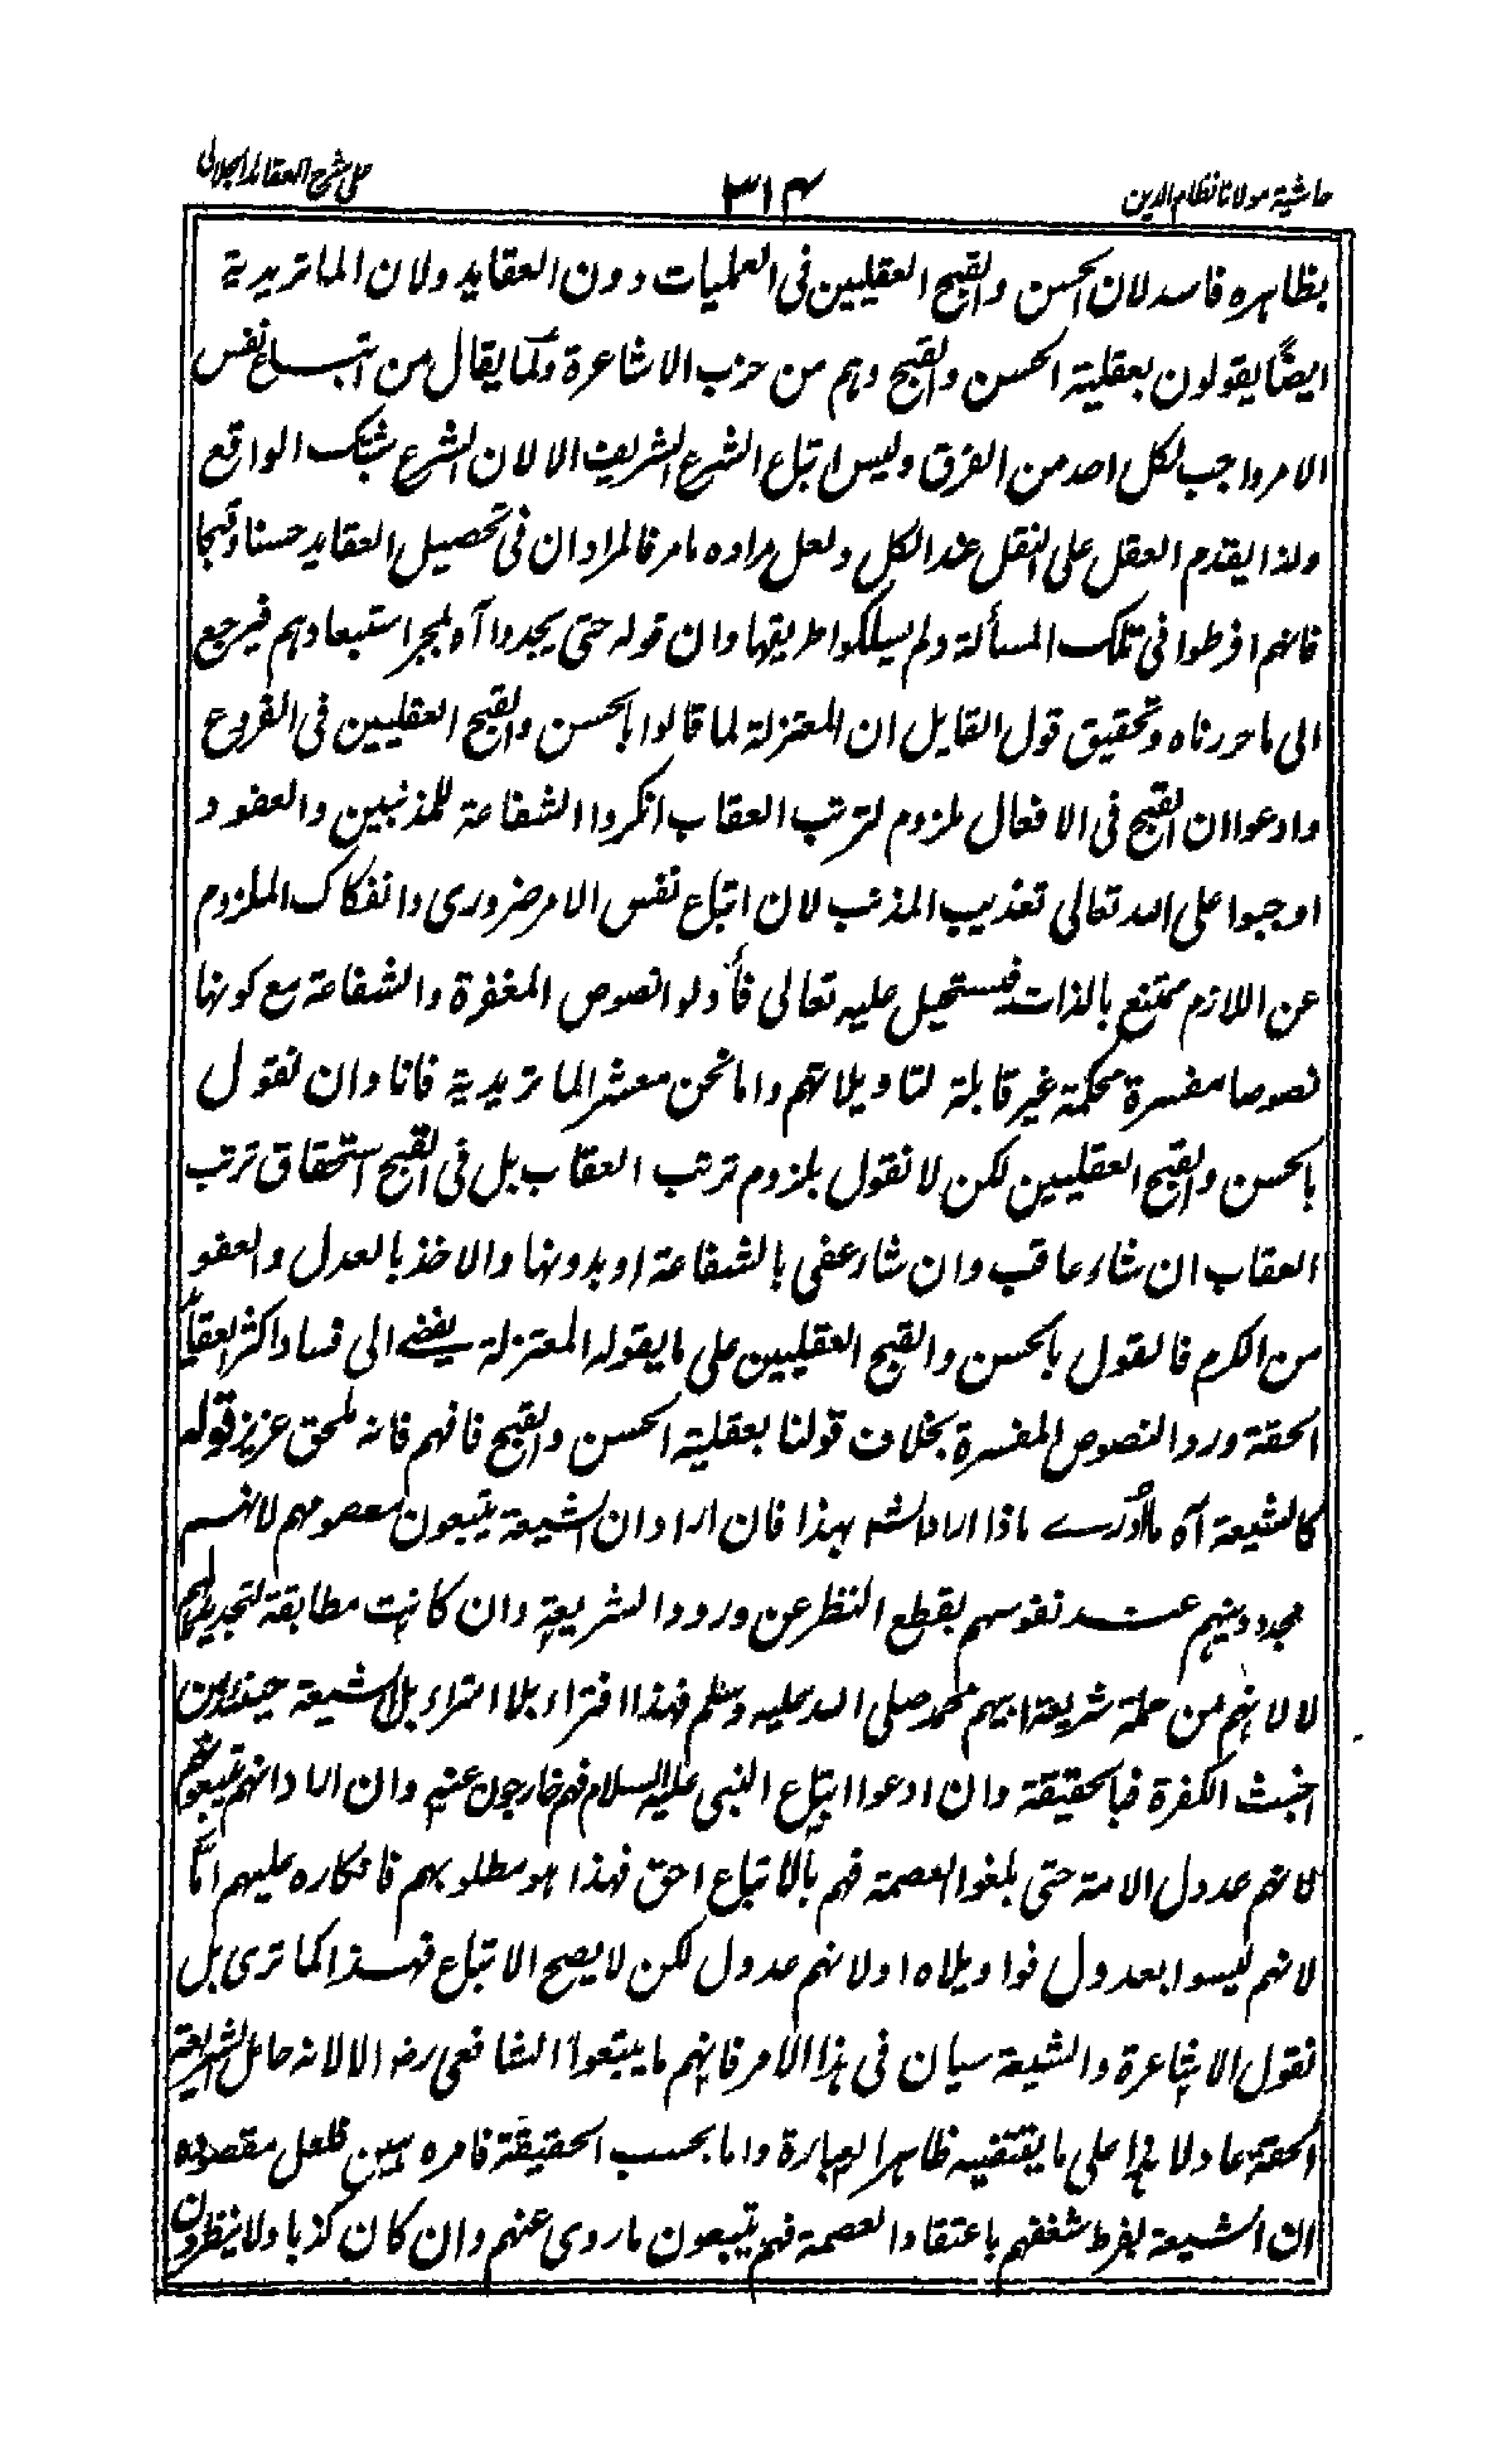 حاشية مولانا نظام الدين
٣١٤
على شرح العقائد الجلالى
بظاهره فاسد لان الحسن والقبح العقليين فى العمليات دون العقايد ولان الماتريدية
ايضًا يقولون بعقلية الحسن والقبح وهم من حزب الاشاعرة ولما يقال من اتباع نفس
الامر واجب لكل احد من الفرق وليس اتباع الشرع الشريف الا لان الشرع الواقع
ولذا يقدم العقل على النقل عند الكل ولعل مراده ما مر فالمراد ان فى تحصيل العقايد حسنا وقبحا
فانهم افرطوا فى تلك المسألة ولم يسلكوا طريقها وان قوله حتى يجدوا آه لمجر استبعادهم فيرجع
الى ما حررناه وتحقيق قول القايل ان المعتزلة لما قالوا بالحسن والقبح العقليين فى الفروع
وادعوا ان القبح فى الافعال ملزوم لترتب العقاب انكروا الشفاعة للمذنبين والعفو و
اوجبوا على الله تعالى تعذيب المذنب لان اتباع نفس الامر ضرورى وانفكاك الملزوم
عن اللازم ممتنع بالذات فيستحيل عليه تعالى فأولوا نصوص المغفرة والشفاعة مع كونها
نصوصا مفسرة محكمة غير قابلة لتاويلاتهم واما نحن معشر الماتريدية فانا وان نقول
بالحسن والقبح العقليين لكن لا نقول بلزوم ترتب العقاب بل فى القبح استحقاق ترتب
العقاب ان شاء عاقب وان شاء عفى بالشفاعة او بدونها والاخذ بالعدل والعفو
من الكرم فالقول بالحسن والقبح العقليين على ما يقوله المعتزلة يفضے الى فساد اكثر العقايد
الحقة ورد النصوص المفسرة بخلاف قولنا بعقلية الحسن والقبح فافهم فانه لمحق عزيز قوله
كالشيعة آه ما ادرے ماذا اراد الش بهذا فان اراد ان الشيعة يتبعون معصومهم لانهم
مجددو دينهم عند نفوسهم بقطع النظر عن ورود الشريعة وان كانت مطابقة لتجديداتهم
لا لانهم من حملة شريعة ابيهم محمد صلى الله عليه وسلم فهذا افتراء بلا امتراء بل الشيعة حينئذ من
اخبث الكفرة فبالحقيقة وان ادعوا اتباع النبى عليه السلام فهم خارجون عنهم وان اراد انهم يتبعونهم
لانهم عدول الامة حتى بلغوا العصمة فهم بالاتباع احق فهذا هو مطلوبهم فانكاره عليهم اما
لانهم ليسوا بعدول فوا ويلاه او لانهم عدول لكن لا يصح الاتباع فهذا كما ترى بل
نقول الاشاعرة والشيعة سيان فى هذا الامر فانهم ما يتبعوا الشافعى رضـ الا لانه حامل الشريعة
الحقة عادلا هذا على ما يقتضيه ظاهر العبارة واما بحسب الحقيقة فامره مبين فلعل مقصوده
ان الشيعة لفرط شغفهم باعتقاد العصمة فهم يتبعون ما روى عنهم وان كان كذبا ولا ينظرون